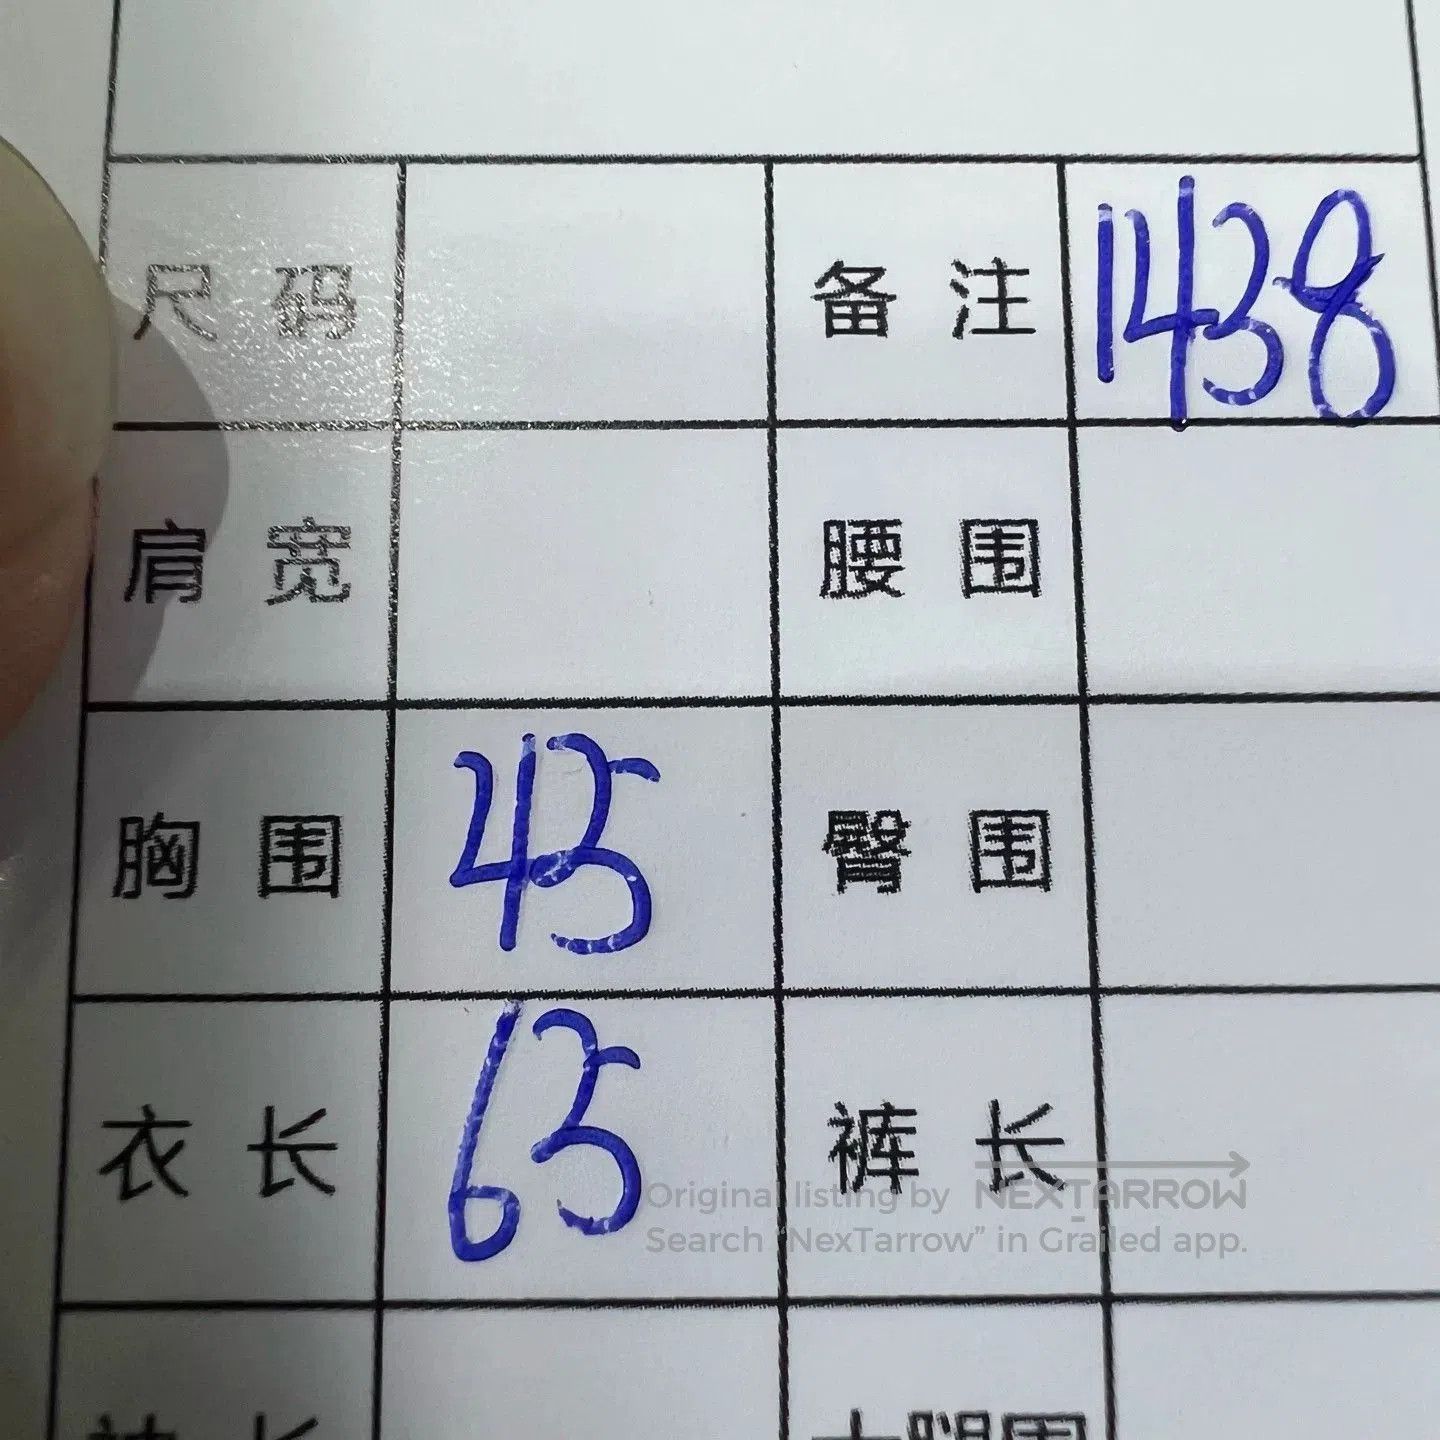 尺 码 备 注 1438
肩 宽 腰 围
胸 围 45 臀 围
衣 长 65 裤 长
Original listing by NEXTARROW
Search "NexTarrow" in Grailed app.
大腿围